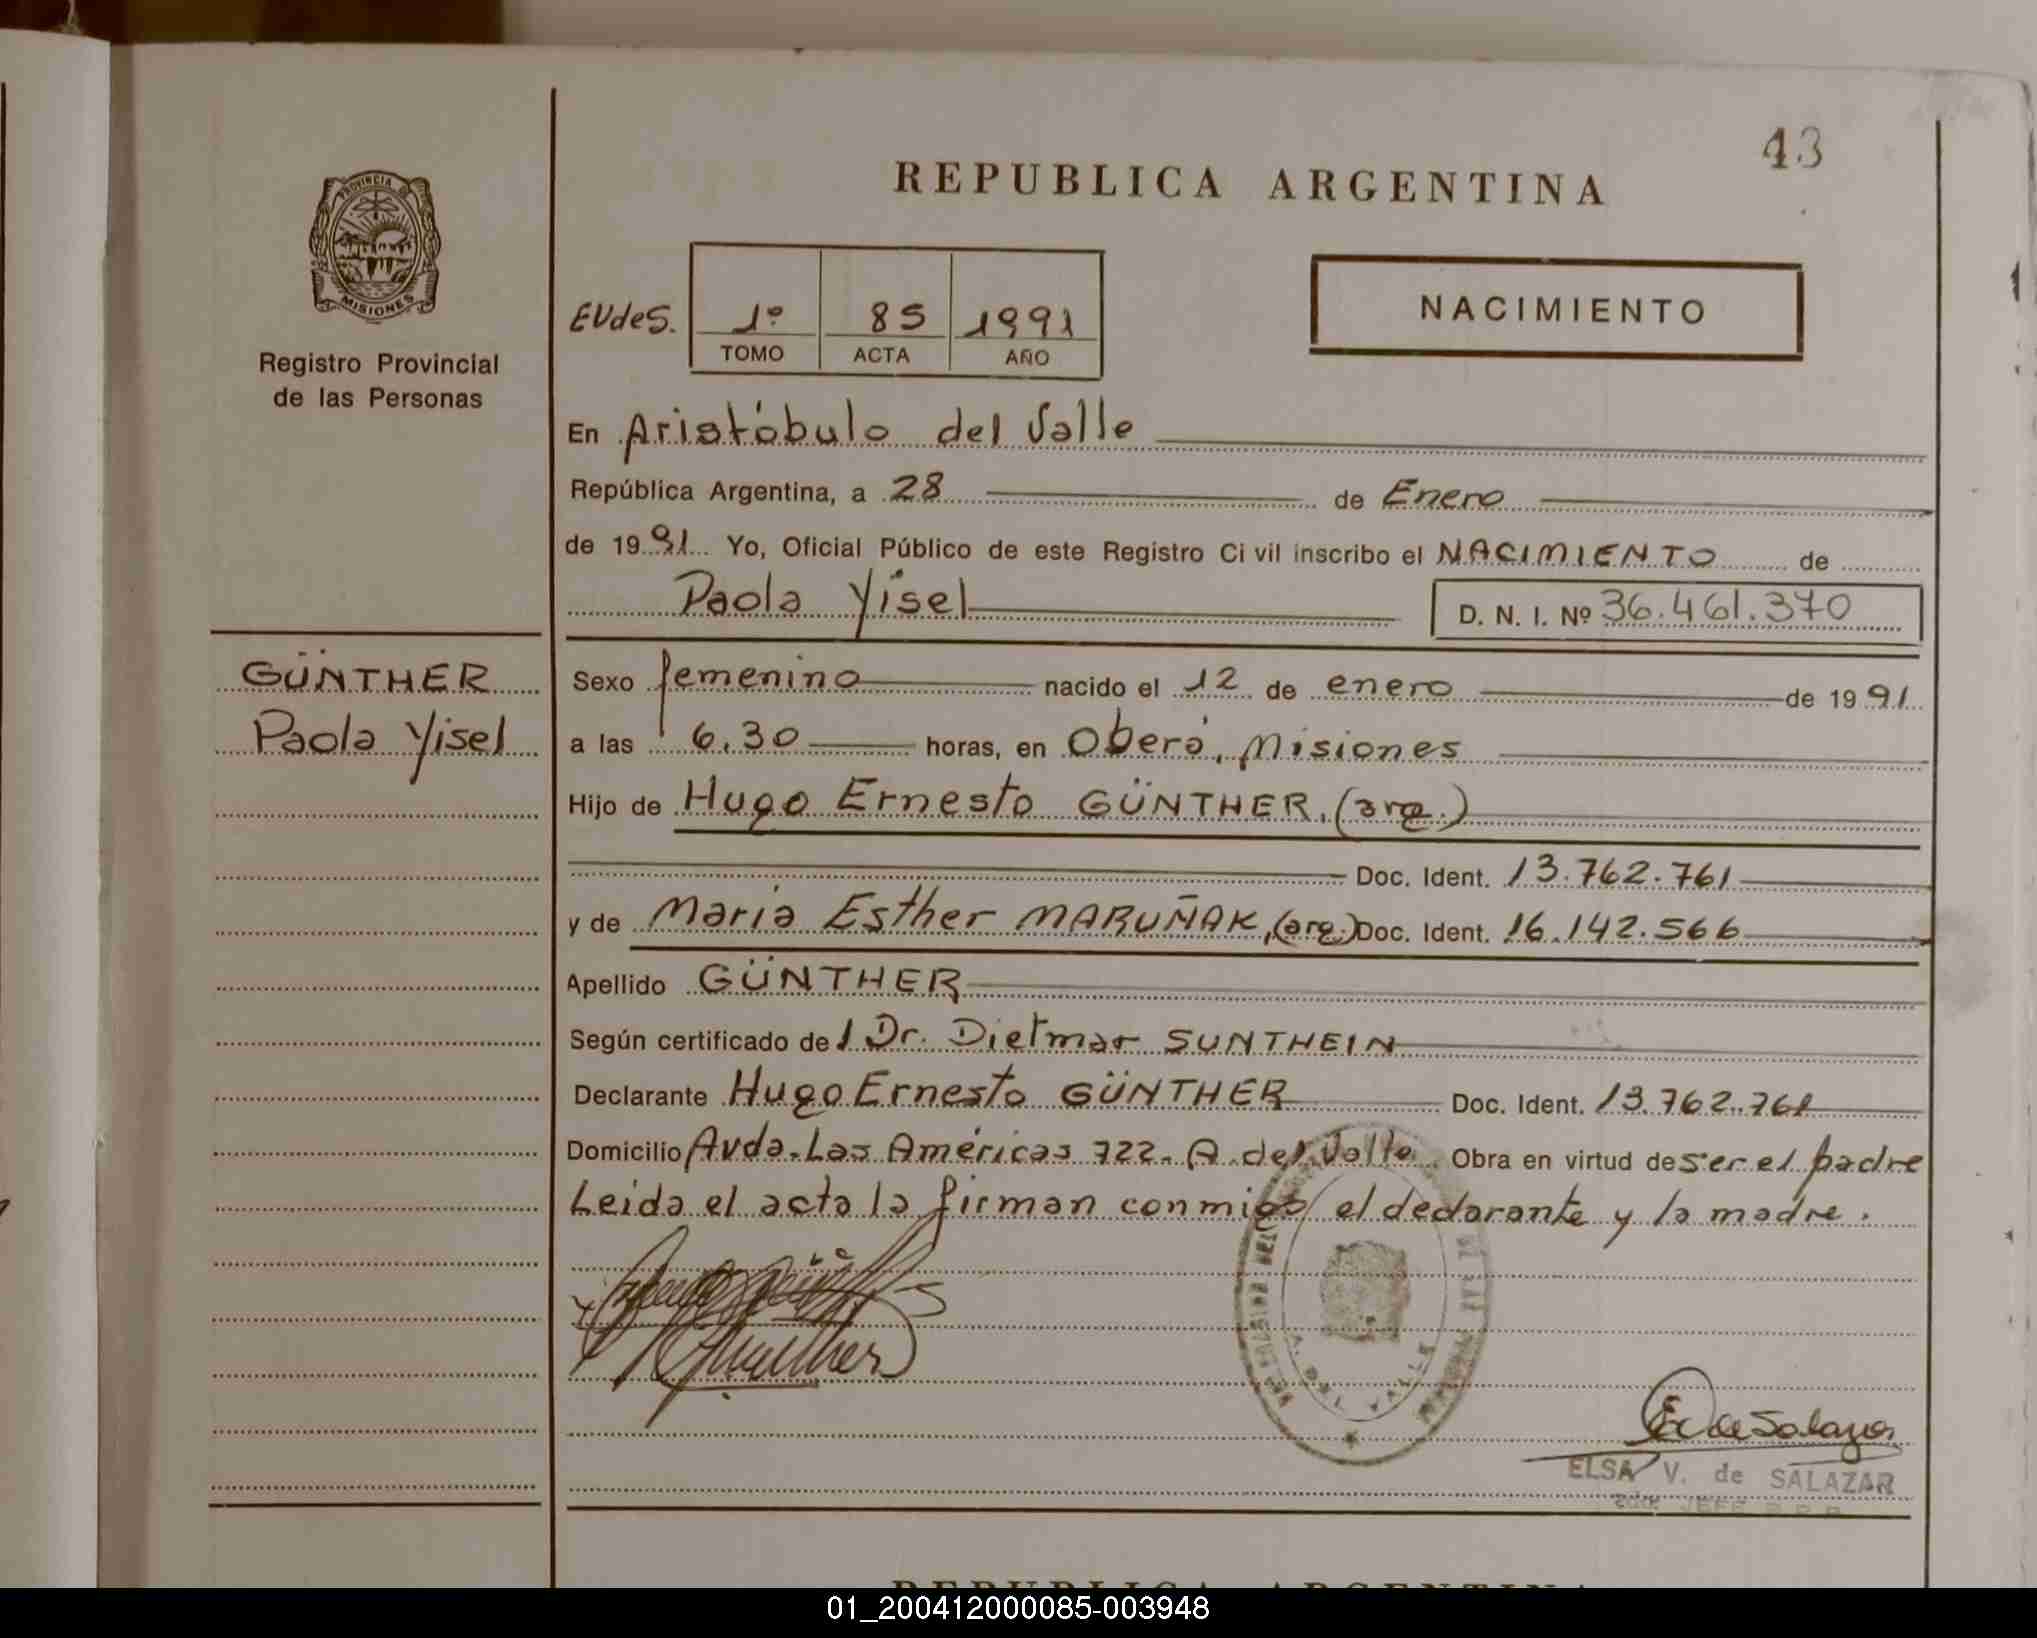 43
REPUBLICA ARGENTINA
PROVINCIA DE
MISIONES
Registro Provincial
de las Personas
EVdeS. 1º 85 1991
TOMO ACTA AÑO
NACIMIENTO
En Aristóbulo del Valle
República Argentina, a 28 de Enero
de 1991 Yo, Oficial Público de este Registro Civil inscribo el NACIMIENTO de
Paola Yisel D. N. I. Nº 36.461.370
GÜNTHER
Paola Yisel
Sexo femenino nacido el 12 de enero de 1991
a las 6.30 horas, en Oberá, Misiones
Hijo de Hugo Ernesto GÜNTHER, (arg.)
Doc. Ident. 13.762.761
y de María Esther MARUÑAK, (arg.) Doc. Ident. 16.142.566
Apellido GÜNTHER
Según certificado del Dr. Dietmar SUNTHEIN
Declarante Hugo Ernesto GÜNTHER Doc. Ident. 13.762.761
Domicilio Avda. Las Américas 722- A. del Valle Obra en virtud de ser el padre
Leida el acta la firman conmigo el declarante y la madre.
A. DEL VALLE
E V de Salazar
ELSA V. de SALAZAR
JEFE R.P.P.
REPUBLICA ARGENTINA
01_200412000085-003948